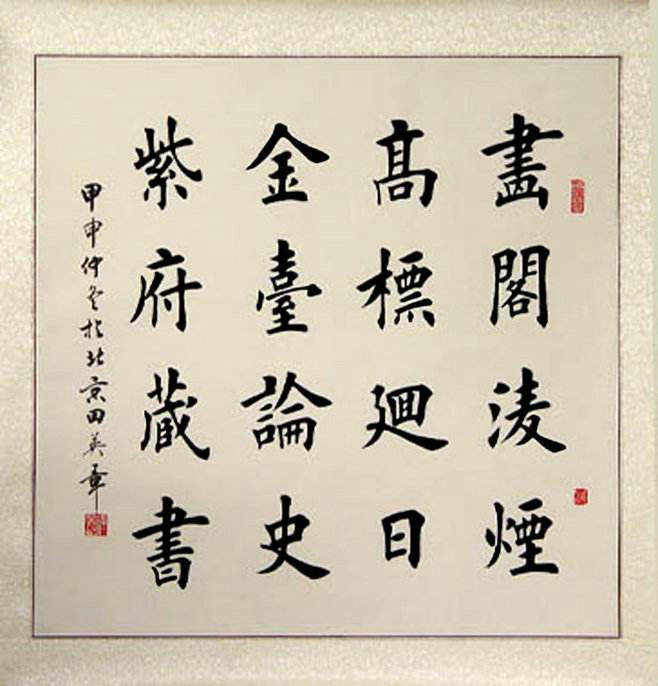 畫閣淩煙
髙標迴日
金臺論史
紫府藏書
甲申仲冬於北京田英章